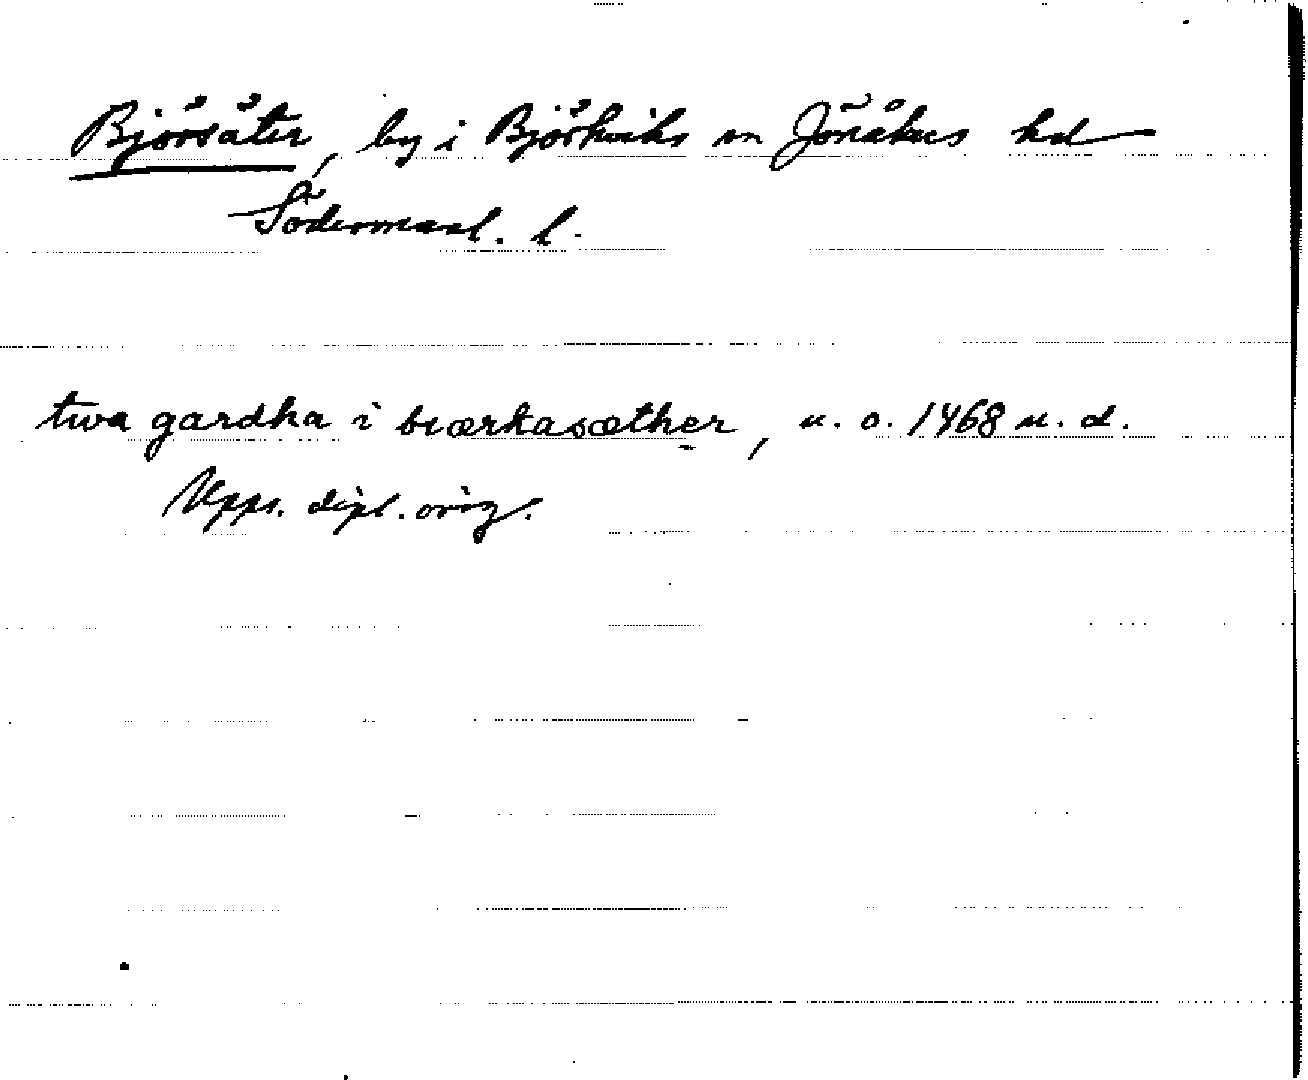 Björsäter, by i Björkviks sn Jönåkers hd
Södermanl. l.
twa gardha i biærkasæther, u. o. 1468 u. d.
Upps. dipl. orig.